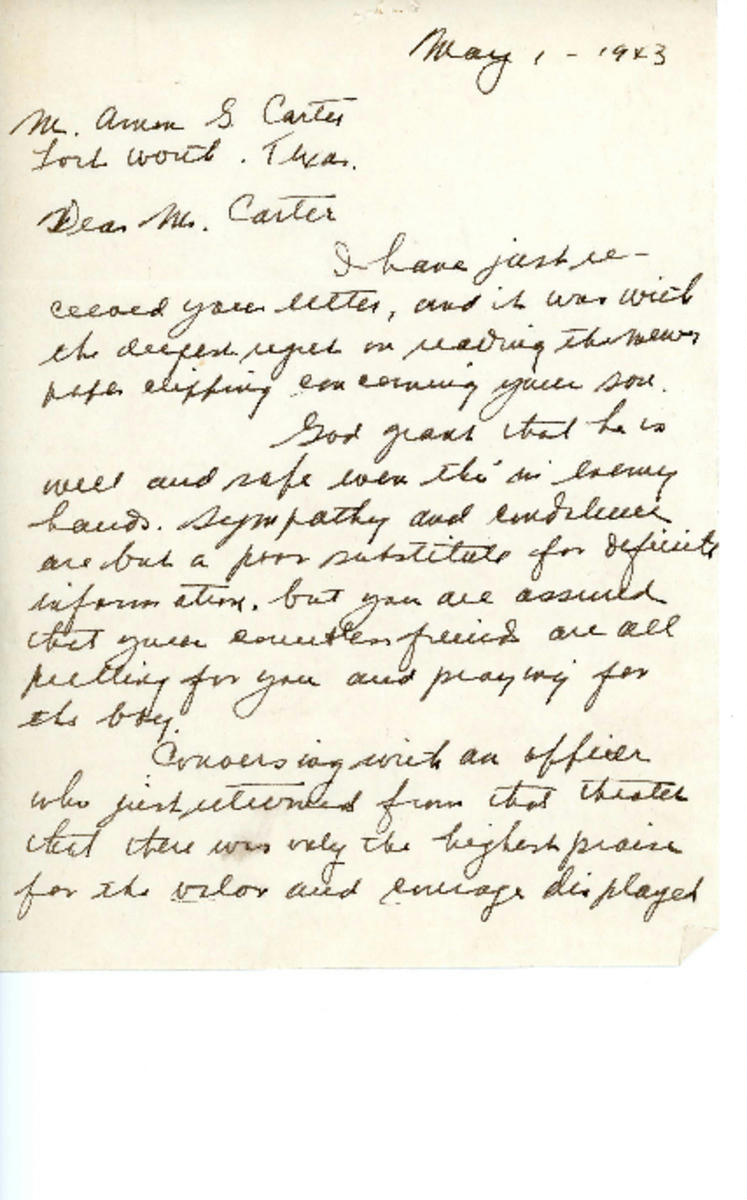 May 1 - 1943
Mr. Amon G. Carter
Fort Worth. Texas.
Dear Mr. Carter
I have just re-
ceived your letter, and it was with
the deepest regret on reading the news
paper clipping concerning your son.
God grant that he is
well and safe even tho' in enemy
hands. Sympathy and condolence
are but a poor substitute for definite
information. but you are assured
that your countless friends are all
pulling for you and praying for
the boy.
Conversing with an officer
who just returned from that theater
that there was only the highest praise
for the valor and courage displayed